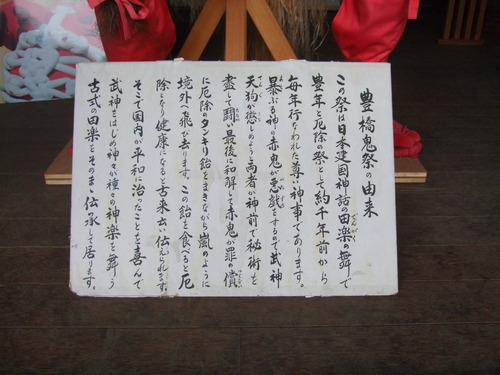 豊橋鬼祭の由来
この祭は日本建国神話の田楽の舞で
豊年と厄除の祭として約千年前から
毎年行なわれた尊い神事であります。
暴ぶる神の赤鬼が悪戯をするので武神
天狗が懲しめようと両者が神前で秘術を
盡して闘い最後に和解して赤鬼が罪の償
に厄除のタンキリ飴をまきながら嵐のように
境外へ飛び去ります。この飴を食べると厄
除となり健康になると古来言い伝えられます。
そこで国内が平和に治ったことを喜んで
武神をはじめ神々が種々の神楽を舞う
古式の田楽をそのまゝ伝承して居ります。